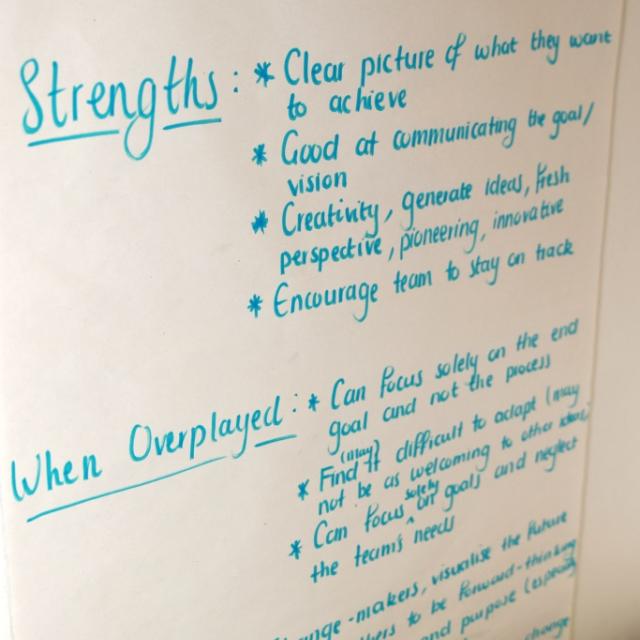 Strengths : * Clear picture of what they want
to achieve
* Good at communicating the goal/
vision
* Creativity, generate ideas, fresh
perspective, pioneering, innovative
* Encourage team to stay on track
When Overplayed : * Can focus solely on the end
goal and not the process
(may)
* Find it difficult to adapt (may
not be as welcoming to other ideas)
solely
* Can focus ^ on goals and neglect
the team's needs
-makers, visualise the future
to be forward-thinking
and purpose (especially
change